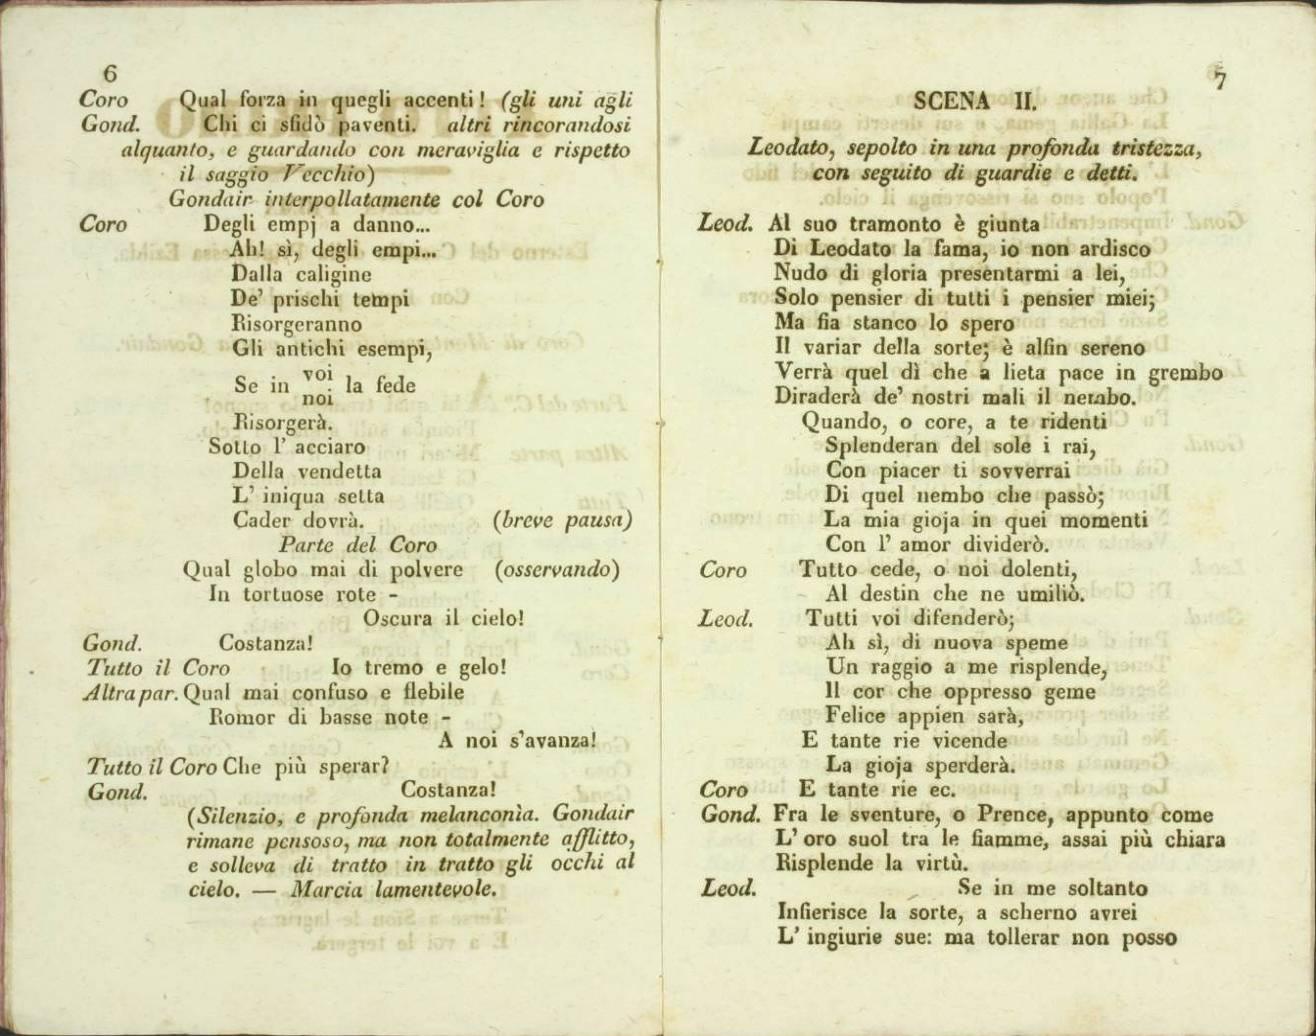 6
Coro Qual forza in quegli accenti! (gli uni agli
Gond. Chi ci sfidò paventi. altri rincorandosi
alquanto, e guardando con meraviglia e rispetto
il saggio Vecchio)
Gondair interpollatamente col Coro
Coro Degli empj a danno...
Ah! sì, degli empi...
Dalla caligine
De' prischi tempi
Risorgeranno
Gli antichi esempi,
Se in voi la fede
noi
Risorgerà.
Sotto l' acciaro
Della vendetta
L' iniqua setta
Cader dovrà. (breve pausa)
Parte del Coro
Qual globo mai di polvere (osservando)
In tortuose rote -
Oscura il cielo!
Gond. Costanza!
Tutto il Coro Io tremo e gelo!
Altra par. Qual mai confuso e flebile
Romor di basse note -
A noi s'avanza!
Tutto il Coro Che più sperar?
Gond. Costanza!
(Silenzio, e profonda melanconìa. Gondair
rimane pensoso, ma non totalmente afflitto,
e solleva di tratto in tratto gli occhi al
cielo. — Marcia lamentevole.
7
SCENA II.
Leodato, sepolto in una profonda tristezza,
con seguito di guardie e detti.
Leod. Al suo tramonto è giunta
Di Leodato la fama, io non ardisco
Nudo di gloria presentarmi a lei,
Solo pensier di tutti i pensier miei;
Ma fia stanco lo spero
Il variar della sorte; è alfin sereno
Verrà quel dì che a lieta pace in grembo
Diraderà de' nostri mali il nembo.
Quando, o core, a te ridenti
Splenderan del sole i rai,
Con piacer ti sovverrai
Di quel nembo che passò;
La mia gioja in quei momenti
Con l' amor dividerò.
Coro Tutto cede, o noi dolenti,
Al destin che ne umiliò.
Leod. Tutti voi difenderò;
Ah sì, di nuova speme
Un raggio a me risplende,
Il cor che oppresso geme
Felice appien sarà,
E tante rie vicende
La gioja sperderà.
Coro E tante rie ec.
Gond. Fra le sventure, o Prence, appunto come
L' oro suol tra le fiamme, assai più chiara
Risplende la virtù.
Leod. Se in me soltanto
Infierisce la sorte, a scherno avrei
L' ingiurie sue: ma tollerar non posso